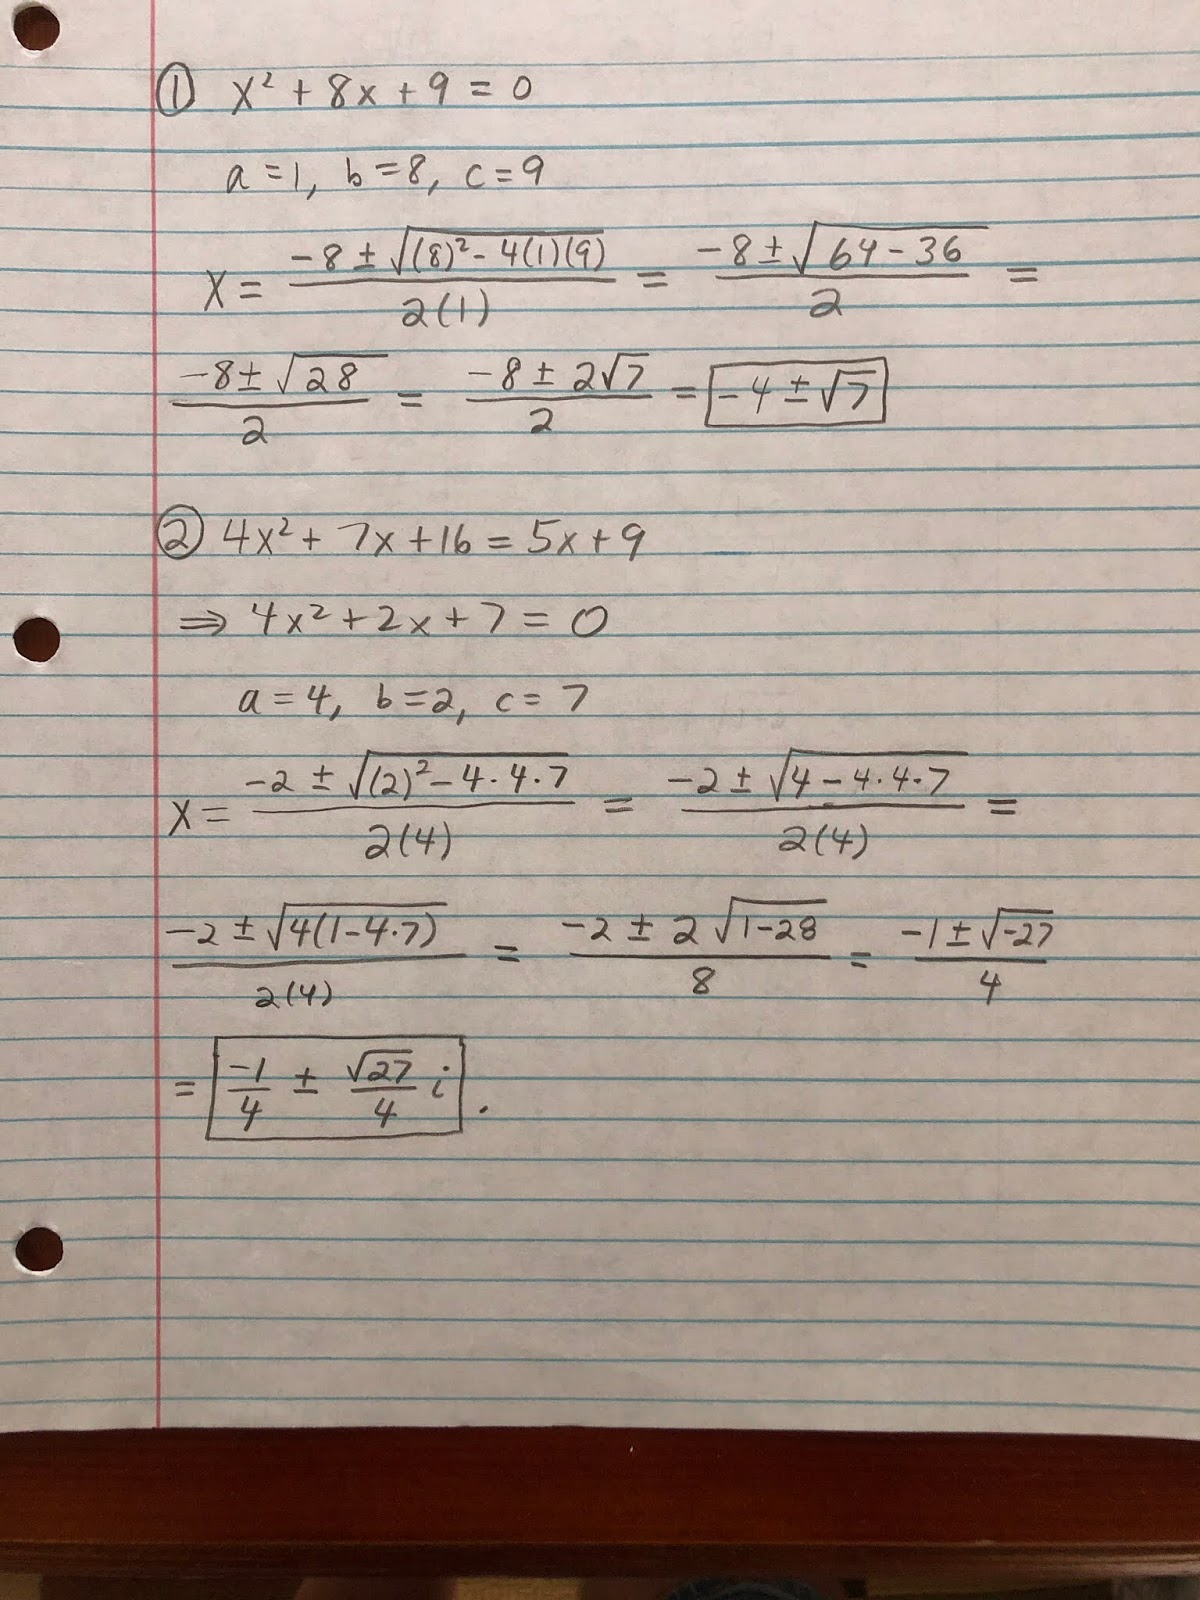 ① x² + 8x + 9 = 0
a = 1, b = 8, c = 9
x = (-8 ± √((8)² - 4(1)(9))) / 2(1) = (-8 ± √(64 - 36)) / 2 =
(-8 ± √28) / 2 = (-8 ± 2√7) / 2 = -4 ± √7
② 4x² + 7x + 16 = 5x + 9
⇒ 4x² + 2x + 7 = 0
a = 4, b = 2, c = 7
x = (-2 ± √((2)² - 4·4·7)) / 2(4) = (-2 ± √(4 - 4·4·7)) / 2(4) =
(-2 ± √(4(1-4·7))) / 2(4) = (-2 ± 2√(1-28)) / 8 = (-1 ± √-27) / 4
= -1/4 ± √27/4 i .